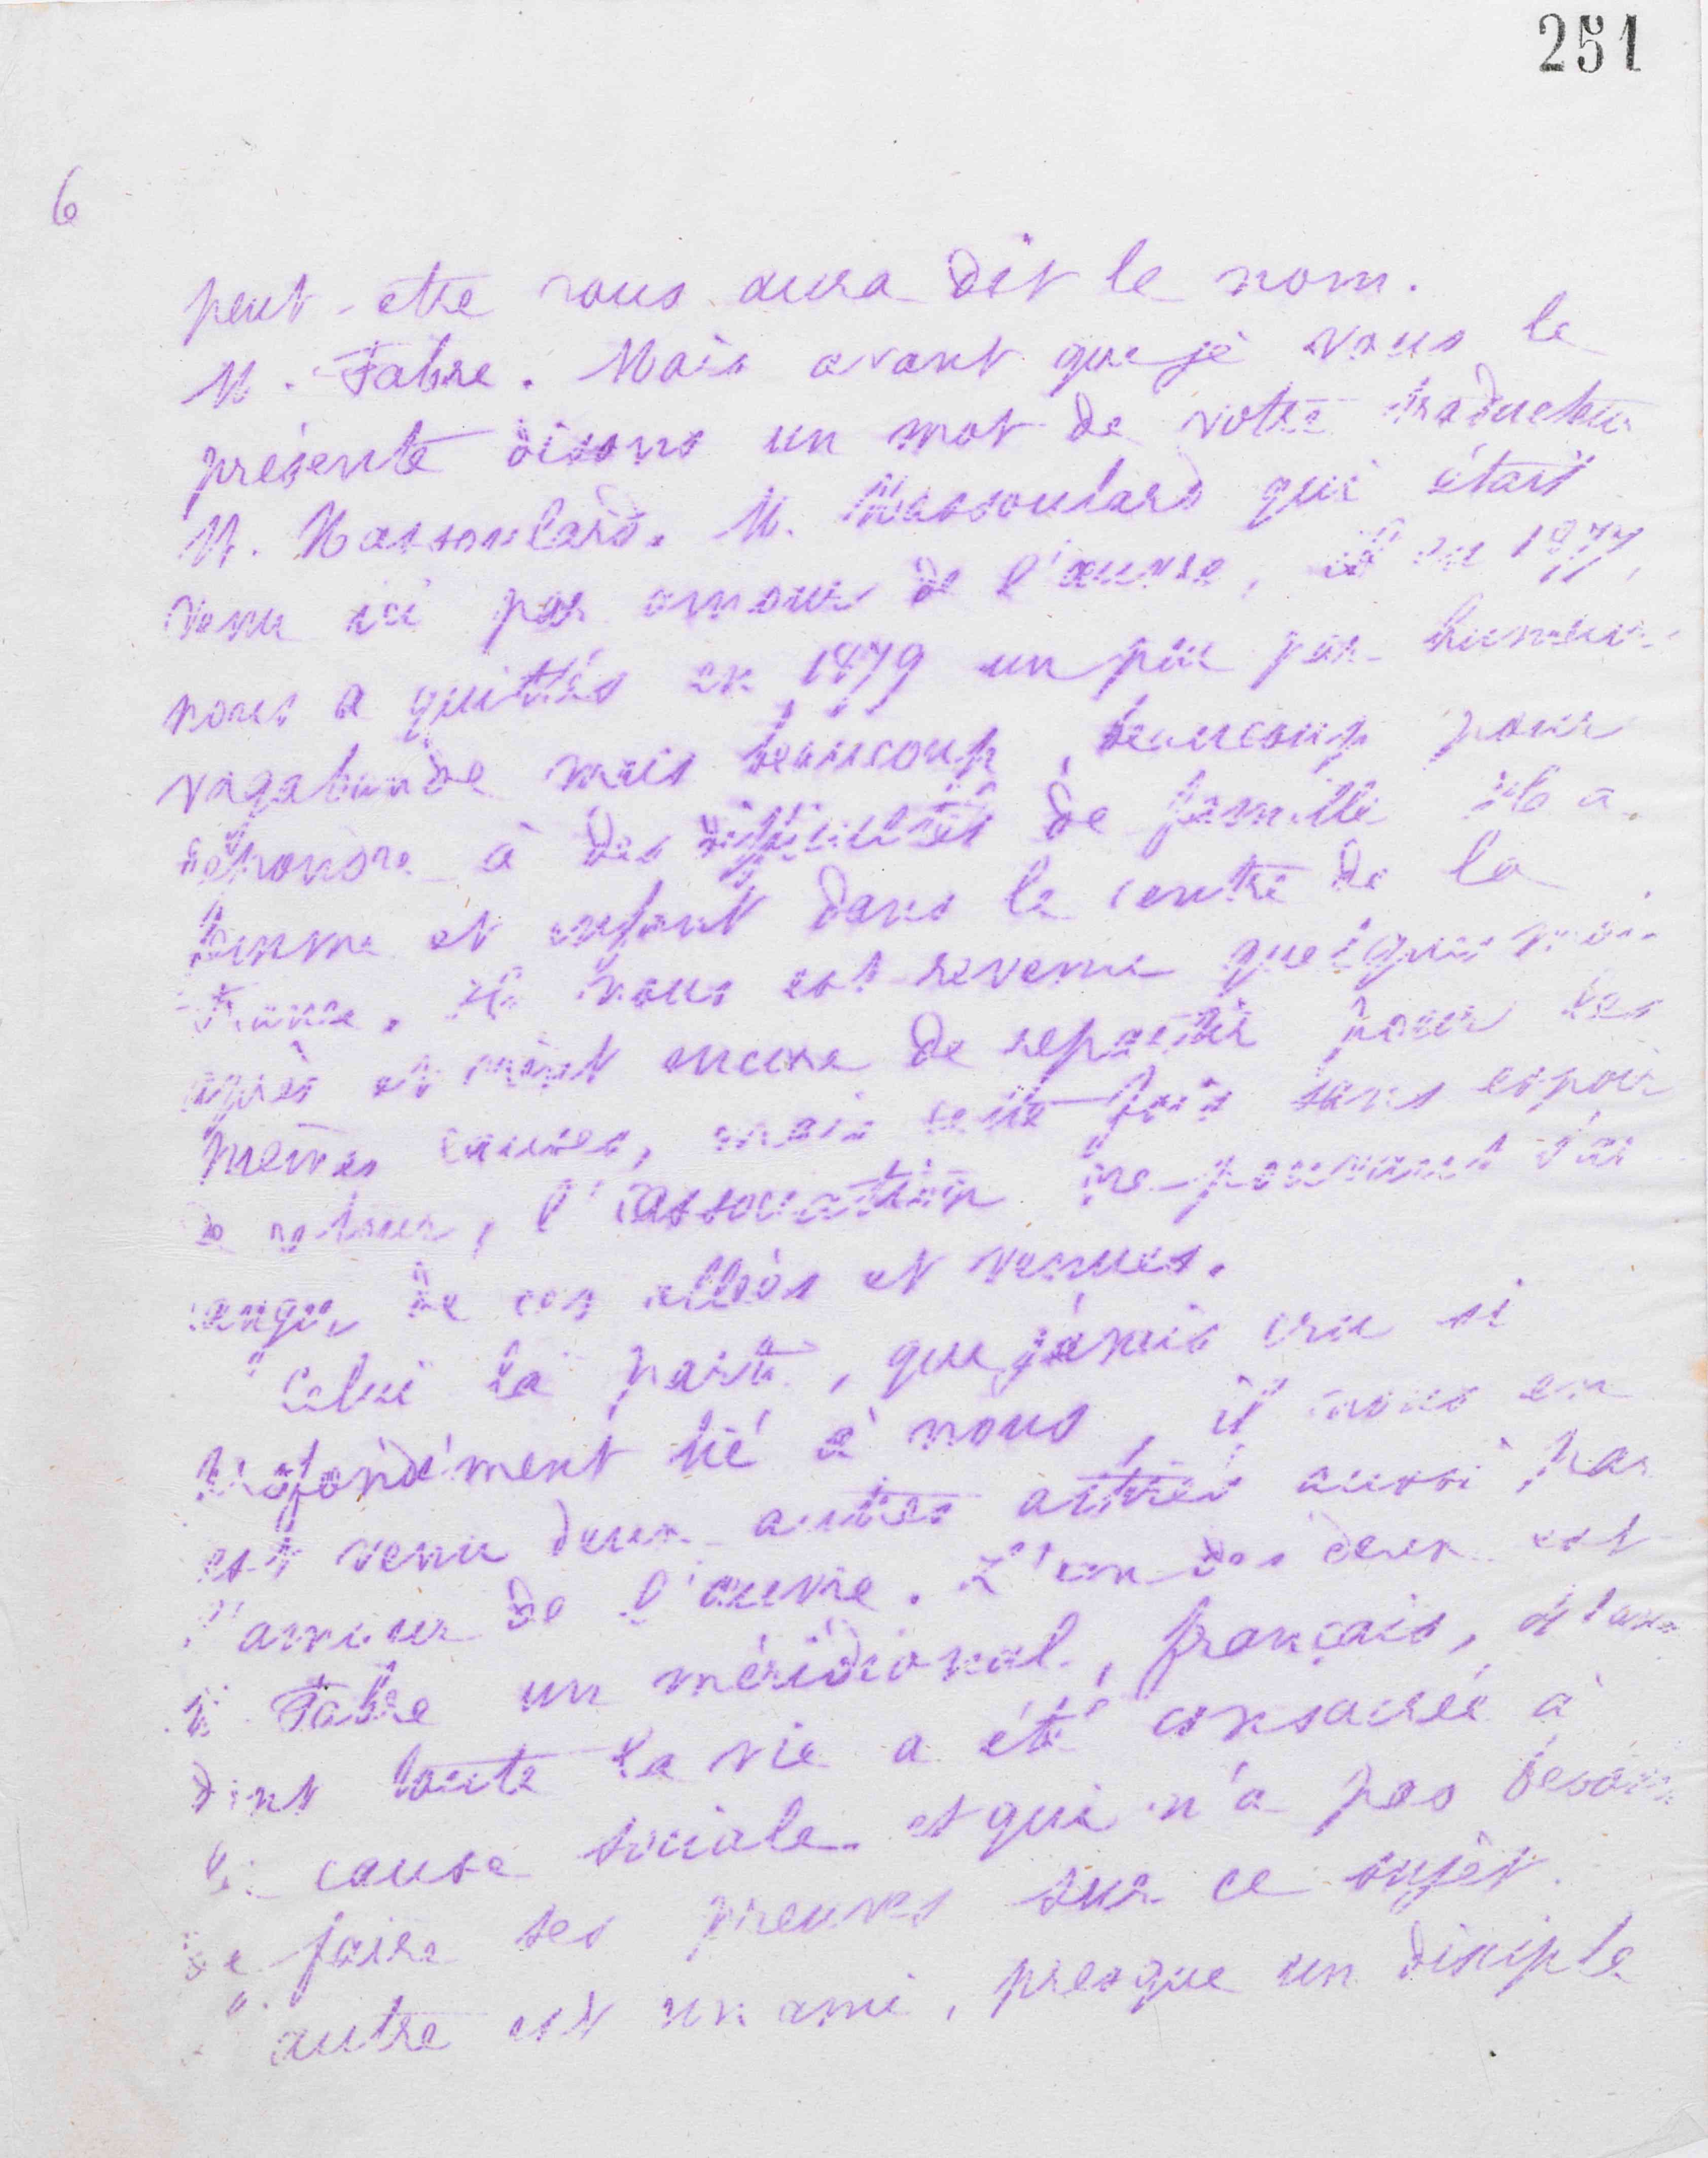 251
6
peut-etre vous aura dit le nom.
M. Fabre. Mais avant que je vous le
présente disons un mot de votre traducteur
M. Massoulard. M. Massoulard qui était
venu ici par amour de l'œuvre, en 1877,
nous a quittés en 1879 un peu par humeur
vagabonde mais beaucoup, beaucoup pour
répondre à des difficultés de famille. Il a
femme et enfant dans le centre de la
France. Il nous est revenu quelques mois
après et vient encore de repartir pour les
mêmes causes, mais cette fois sans espoir
de retour, l'association ne pouvant s'ar
ranger de ces allées et venues.
Celui là parti, que j'avais cru si
profondément lié à nous, il nous en
est venu deux autres attirés aussi par
l'amour de l'œuvre. L'un des deux est
M. Fabre un méridional, français,
dont toute la vie a été consacrée à
la cause sociale et qui n'a pas besoin
de faire ses preuves sur ce sujet.
L'autre est un ami, presque un disciple